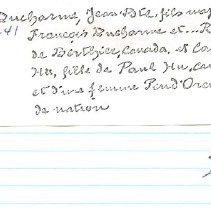 Ducharme, Jean-Bte, fils maj
41 François Ducharme et ... R
de Berthier, Canada, et
Hu, fille de Paul Hu,
et d'une femme Pend' Ore
de nation